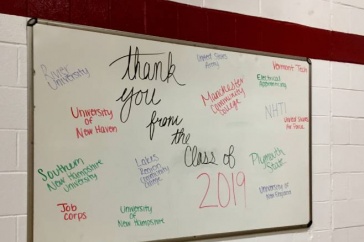 River
University
thank
you
from
the
Class of
2019
United States
Army
Vermont Tech
Electrical
Apprenticeship
University
of
New Haven
Manchester
Community
College
NHTI
United States
Air Force
Southern
New Hampshire
University
Lakes
Region
Community
College
Plymouth
State
Job
Corps
University
of
New Hampshire
University
of New England